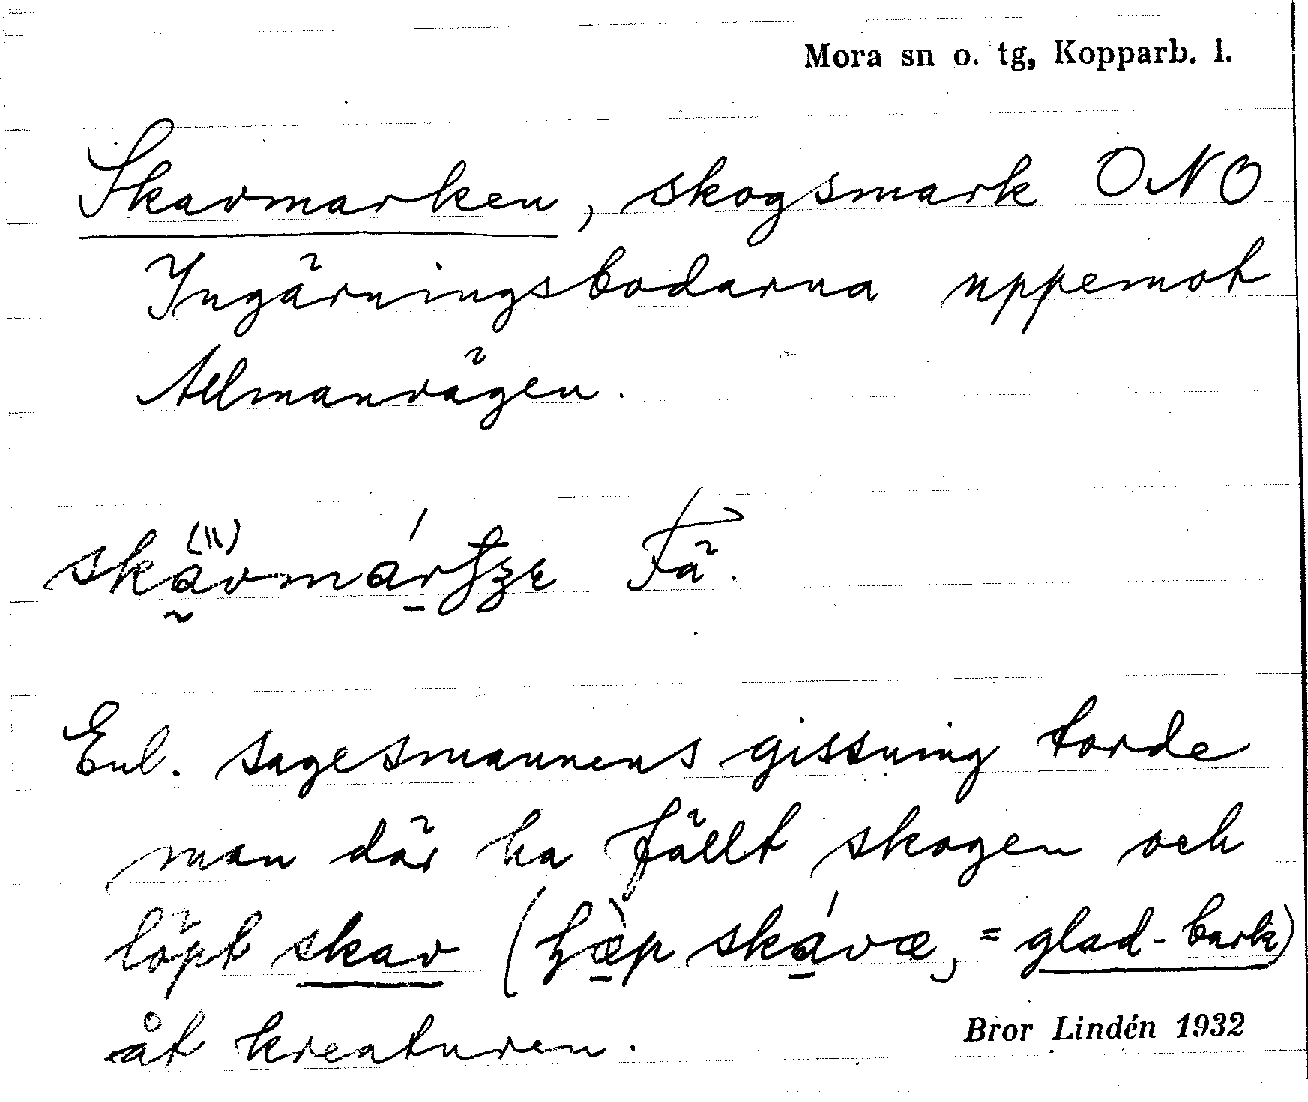 Mora sn o. tg, Kopparb. l.
Skavmarken, skogsmark ONO
Ingärningsbodarna uppemot
Allmanvägen.
Fä.
Enl. sagesmannens gissning torde
man där ha fällt skogen och
löpt skav (skávæ, = glad-bark)
åt kreaturen.
Bror Lindén 1932